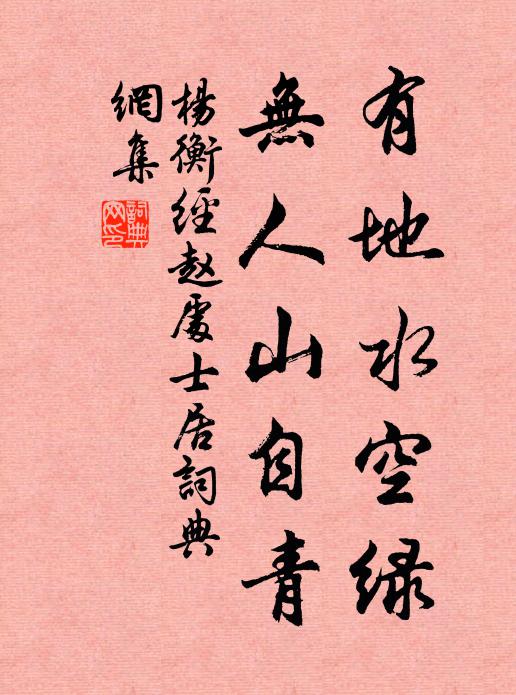 有地水空緑
無人山自青
楊衡經赵處士居詞典
網集
詞典
网印